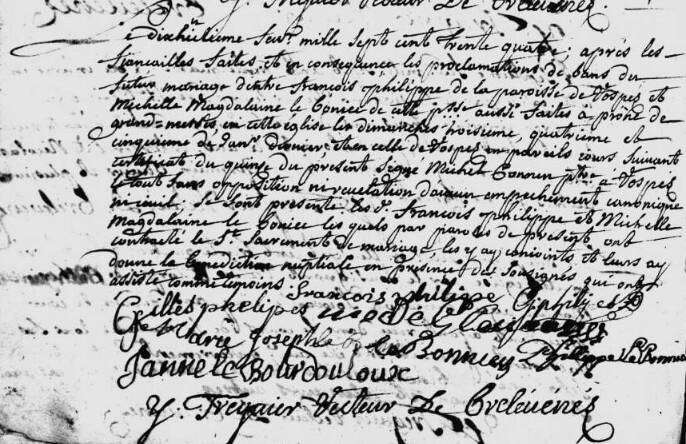 Y. Treguier Recteur De Treleuenes.
Le dixhuitieme feur. mille sept cent trente quatre; après les
fiancailles faites, et en consequence les proclamations de bans du
futur mariage d'entre françois philippe de la paroisse de Pospes et
Michelle Magdalaine le Bonniec de cette psse aussi faites a prone de
grand-messes, en cette eglise les dimanches troisieme, quatrieme et
cinquieme de Janr. dernier et en celle de Pospes en pareils jours suivant
certificat du quinze du présent signé Michel ptre a Pospes
le tout sans opposition ni revelation d'aucun empechement canonique
ni civil, se sont presenté les Srs. François philippe et Michelle
Magdalaine le Boniec les quels par paroles de present ont
contracté le St. Sacrement de mariage, les y ay conjoints et leurs ay
donné la benediction nuptiale en presence des Soûsignés qui ont
assisté comme temoins françois philippe
Gilles phelipes
Marie Josephe Le Bonniec Philippe Le Bonniec
Janne le Bourdouloux
Y. Treguier Recteur De Treleuenes